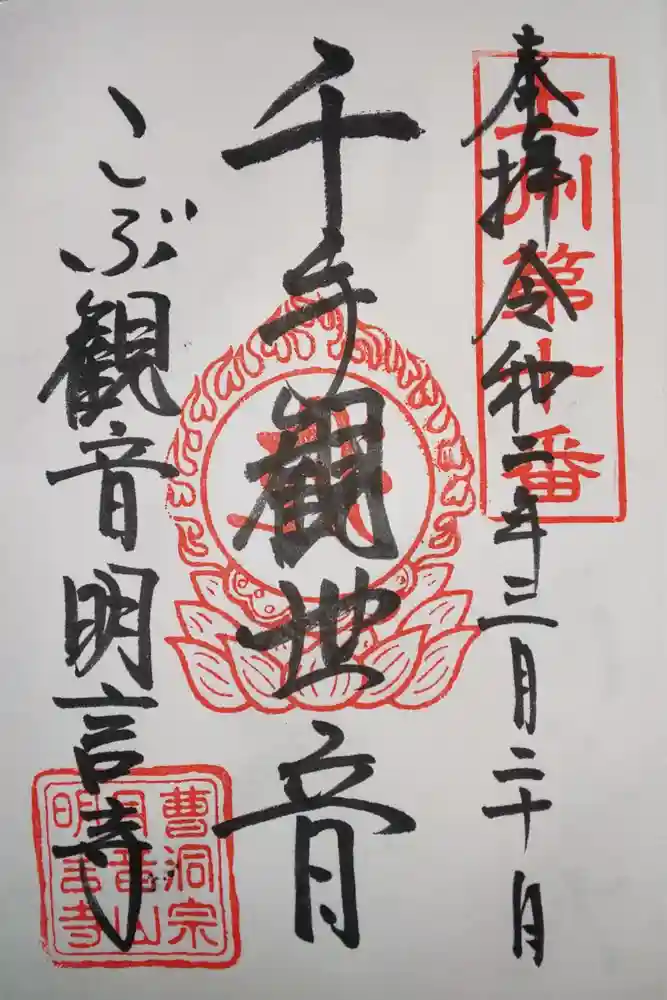 奉拝令和二年三月二十日
上州第十番
千手觀世音
こぶ観音明言寺
曹洞宗
音山
明言寺